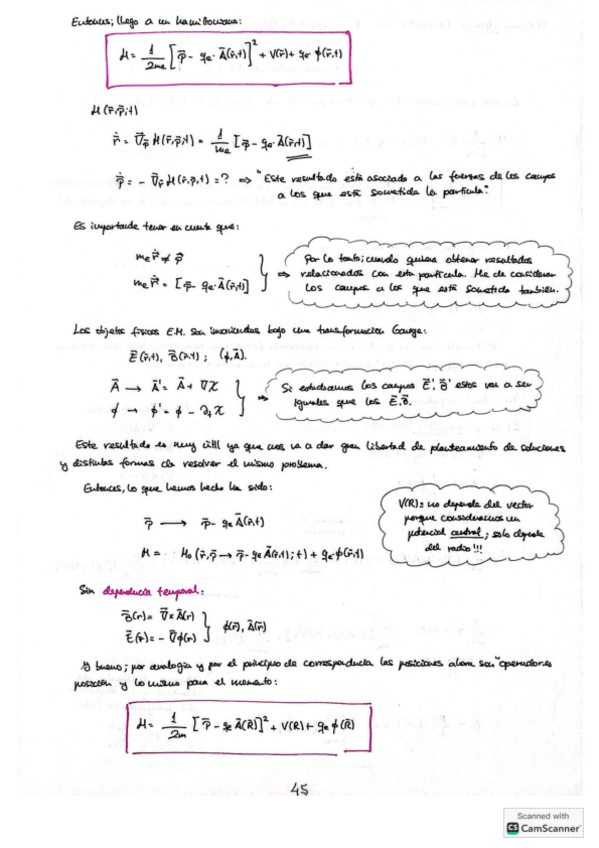 Entonces; llego a un hamiltoniano:
H = 1/2me [p⃗ - qe·A⃗(r⃗,t)]² + V(r⃗) + qe·ϕ(r⃗,t)
H(r⃗,p⃗,t)
ṙ⃗ = ∇⃗p⃗ H(r⃗,p⃗,t) = 1/me [p⃗ - qe·A⃗(r⃗,t)]
ṗ⃗ = - ∇⃗r⃗ H(r⃗,p⃗,t) = ? ⇒ "Este resultado está asociado a las fuerzas de los campos
a los que está sometida la partícula".
Es importante tener en cuenta que:
me ṙ⃗ ≠ p⃗
me ṙ⃗ = [p⃗ - qe·A⃗(r⃗,t)]
⇒ Por lo tanto; cuando quiera obtener resultados
relacionados con esta partícula. He de considerar
los campos a los que está sometida también.
Los objetos físicos E.M. son invariantes bajo una transformación Gauge:
E⃗(r⃗,t), B⃗(r⃗,t) ; (ϕ,A⃗).
A⃗ → A⃗' = A⃗ + ∇χ
ϕ → ϕ' = ϕ - ∂tχ
⇒ Si estudiamos los campos E⃗', B⃗' estos van a ser
iguales que los E⃗, B⃗.
Este resultado es muy útil ya que nos va a dar gran libertad de planteamiento de soluciones
y distintas formas de resolver el mismo problema.
Entonces, lo que hemos hecho ha sido:
p⃗ → p⃗ - qe A⃗(r⃗,t)
H = H₀(r⃗, p⃗ → p⃗ - qe A⃗(r⃗,t); t) + qe·ϕ(r⃗,t)
V(R) = no depende del vector
porque consideramos un
potencial central; solo depende
del radio!!!
Sin dependencia temporal:
B⃗(r) = ∇⃗ x A⃗(r)
E⃗(r) = - ∇⃗ϕ(r)
ϕ(r⃗), A⃗(r)
Y bueno; por analogía y por el principio de correspondencia las posiciones ahora son "operadores
posición y lo mismo para el momento:
H = 1/2m [P⃗ - qe A⃗(R⃗)]² + V(R) + qe ϕ(R⃗)
45
Scanned with
CS CamScanner